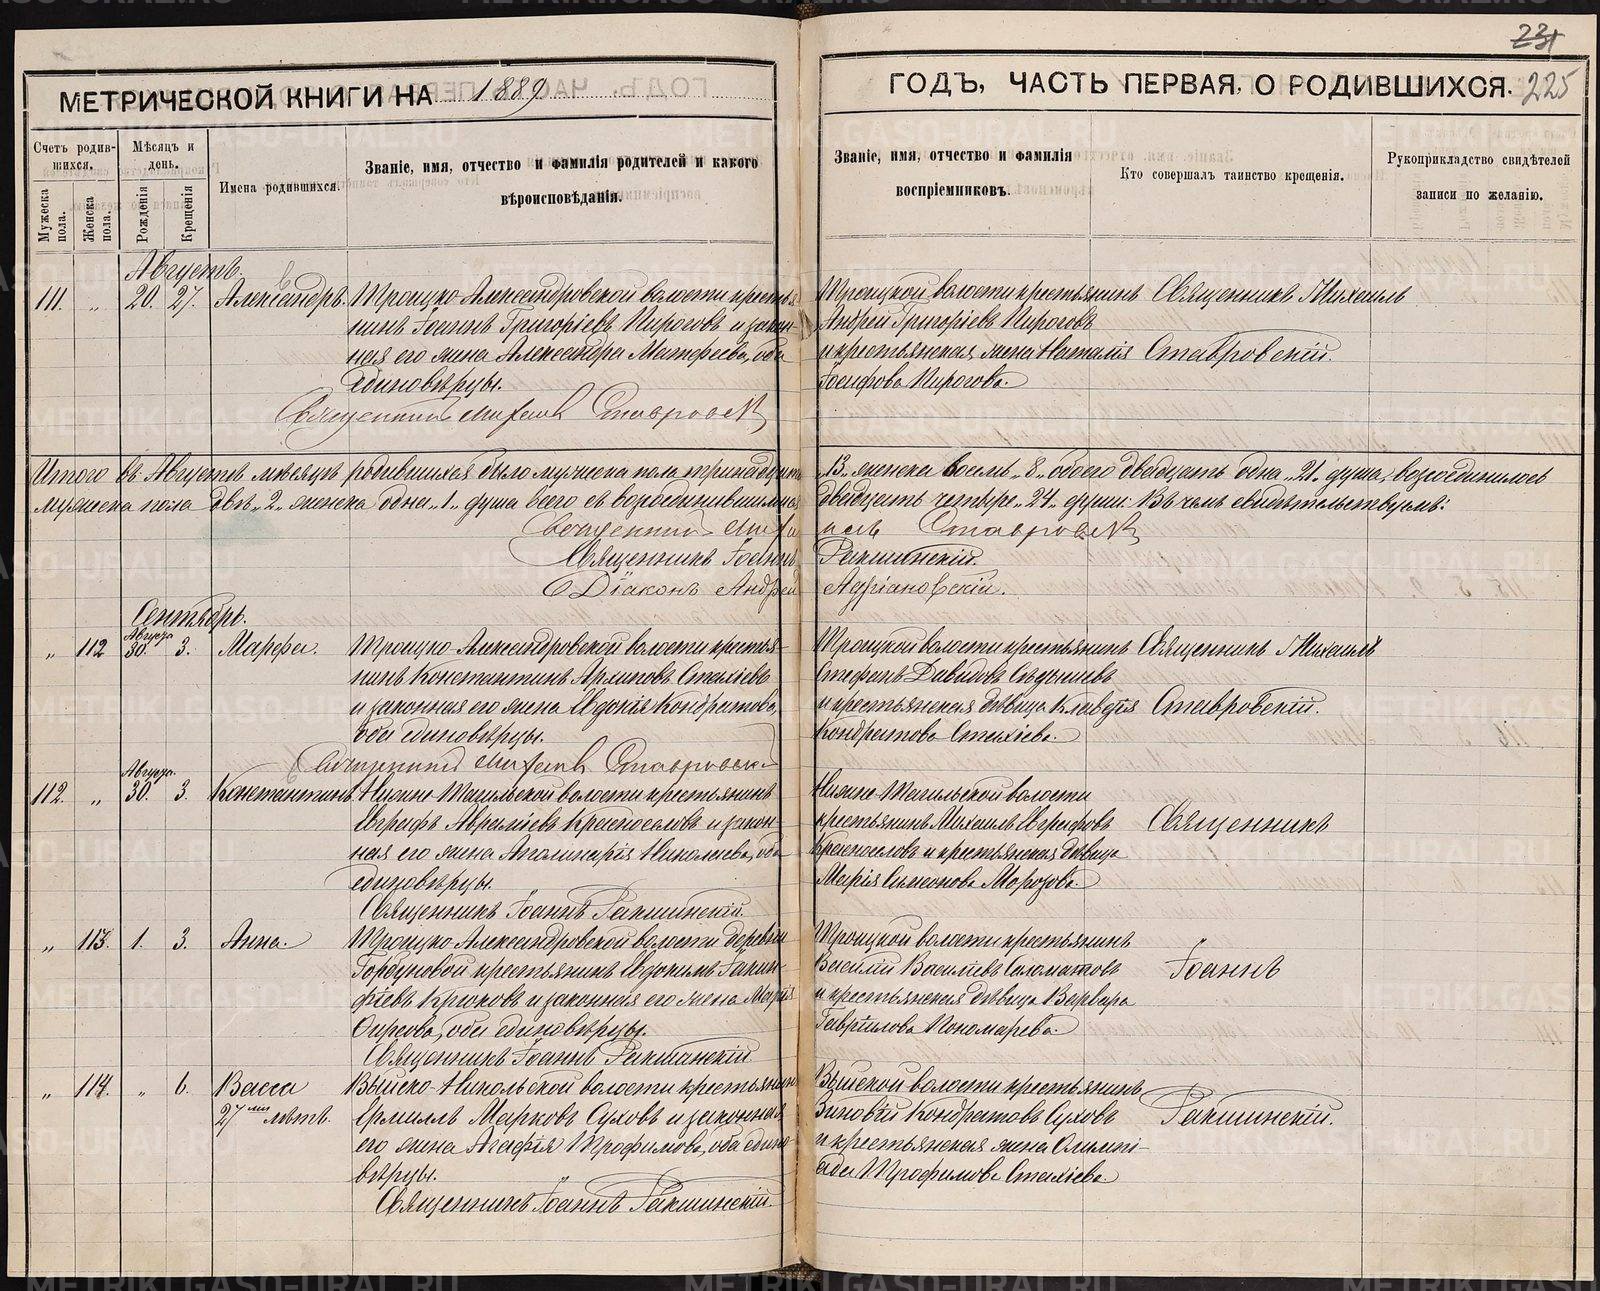 231
225
МЕТРИЧЕСКОЙ КНИГИ НА 1889
ГОДЪ, ЧАСТЬ ПЕРВАЯ, О РОДИВШИХСЯ.
Счетъ родив-
шихся.
Мужеска пола.
Женска пола.
Мѣсяцъ и
день.
Рожденія
Крещенія
Имена родившихся.
Званіе, имя, отчество и фамилія родителей и какого
вѣроисповѣданія.
Званіе, имя, отчество и фамилія
воспріемниковъ.
Кто совершалъ таинство крещенія.
Рукоприкладство свидѣтелей
записи по желанію.
Августъ.
111. „ 20. 27. Александръ.
Троицко-Александровской волости крестья-
нинъ Іоаннъ Григоріевъ Пироговъ и закон-
ная его жена Александра Матфеева, оба
единовѣрцы.
Священникъ Михаилъ Ставровск
Троицкой волости крестьянинъ
Андрей Григоріевъ Пироговъ
и крестьянская жена Наталія
Іосифова Пирогова.
Священникъ Михаилъ
Ставровскій.
Итого въ Августѣ мѣсяцѣ родившихся было мужеска пола тринадцать 13. женска восемь „8„ обоего двадцать одна „21„ душа, возсоединилось
мужеска пола двѣ „2„ женска одна „1„ душа всего съ возсоединившимися двадцать четыре „24„ души: Въ чемъ свидѣтельствуемъ:
Священникъ Михаилъ Ставровск
Священникъ Іоаннъ Ракшинскій.
Діаконъ Андрей Адріановскій.
Сентябрь.
Августа
„ 112 30. 3. Марфа.
Троицко-Александровской волости крестья-
нинъ Константинъ Архиповъ Стахіевъ
и законная его жена Евдокія Кондратова,
оба единовѣрцы.
Священникъ Михаилъ Ставровск
Троицкой волости крестьянинъ
Стефанъ Давидовъ Сѣдышевъ
и крестьянская дѣвица Клавдія
Кондратова Стахіева.
Священникъ Михаилъ
Ставровскій.
Августа.
112. „ 30. 3. Константинъ.
Нижне-Тагильской волости крестьянинъ
Евграфъ Авраміевъ Красноселовъ и закон-
ная его жена Аполинарія Николаева, оба
единовѣрцы.
Священникъ Іоаннъ Ракшинскій.
Нижне-Тагильской волости
крестьянинъ Михаилъ Евграфовъ
Красноселовъ и крестьянская дѣвица
Марія Симеонова Морозова.
Священникъ
„ 113. 1. 3. Анна.
Троицко-Александровской волости деревни
Горбуновой крестьянинъ Евдокимъ Іакин-
фіевъ Крюковъ и законная его жена Марія
Фирсова, оба единовѣрцы.
Священникъ Іоаннъ Ракшинскій
Троицкой волости крестьянинъ
Василій Василіевъ Саломатовъ
и крестьянская дѣвица Варвара
Гавриилова Пономарева.
Іоаннъ
„ 114. „ 6. Васса
27 лѣтъ.
Выйско-Никольской волости крестьянинъ
Ермилъ Марковъ Суховъ и законная
его жена Агафія Трофимова, оба едино-
вѣрцы.
Священникъ Іоаннъ Ракшинскій.
Выйской волости крестьянинъ
Зиновій Кондратовъ Суховъ
и крестьянская жена Олимпі-
ада Трофимова Стахіева.
Ракшинскій.
METRIKI.GASO-URAL.RU